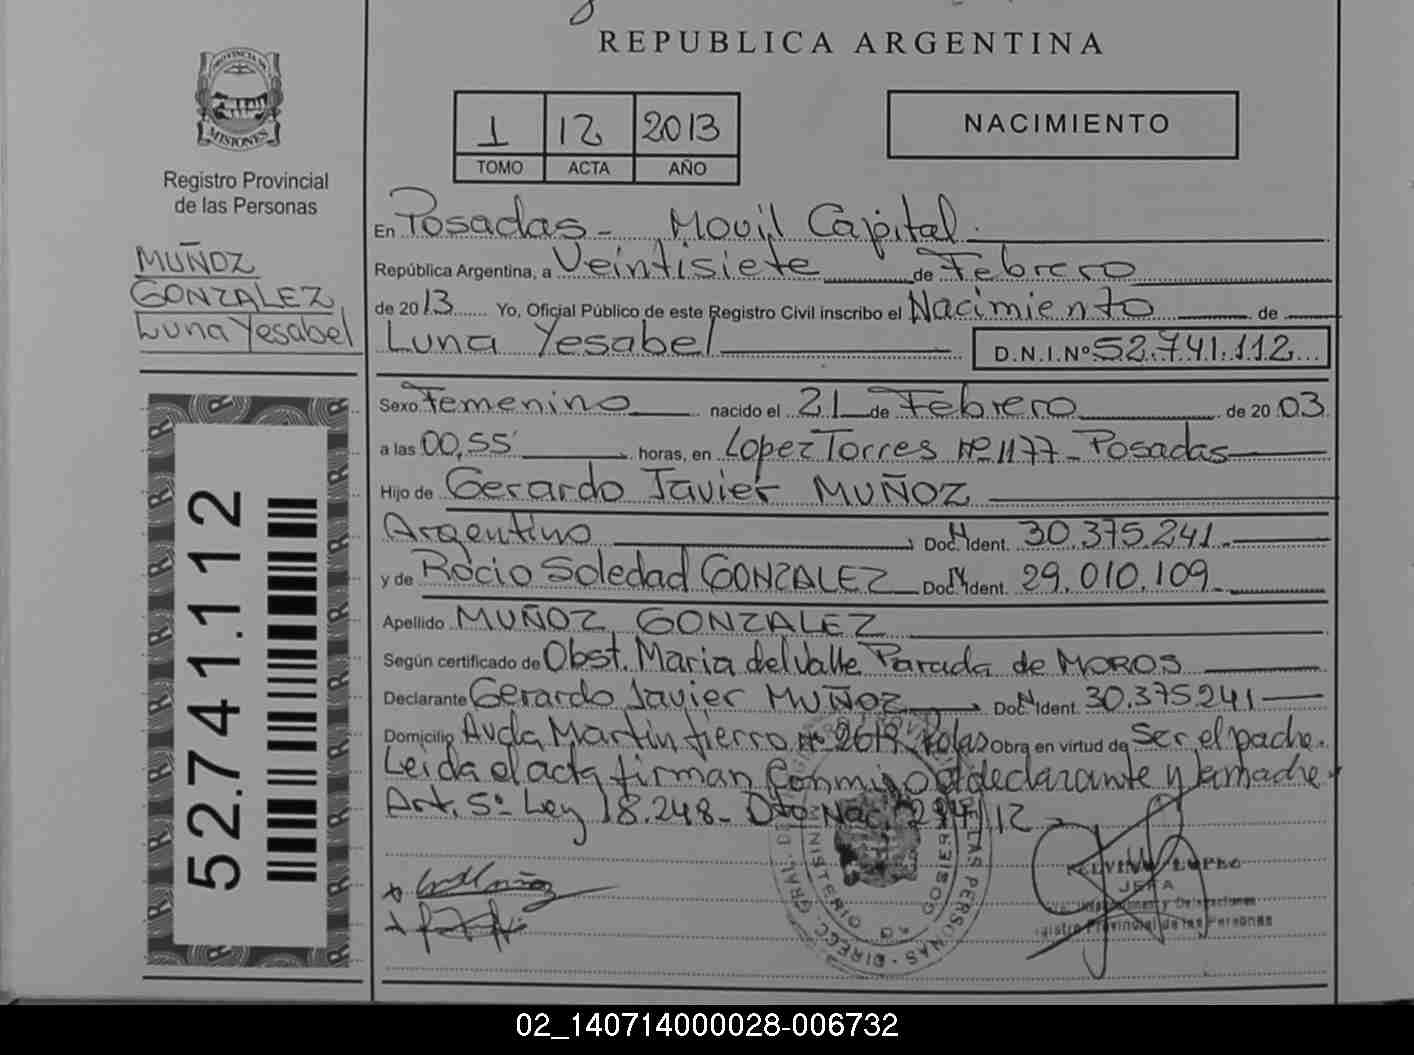 REPUBLICA ARGENTINA
PROVINCIA DE
MISIONES
Registro Provincial
de las Personas
MUÑOZ
GONZALEZ
Luna Yesabel
52.741.112
1 12 2013
TOMO ACTA AÑO
NACIMIENTO
En Posadas - Movil Capital.
República Argentina, a Veintisiete de Febrero
de 2013 Yo, Oficial Público de este Registro Civil inscribo el Nacimiento de
Luna Yesabel D.N.I.Nº 52.741.112
Sexo Femenino nacido el 21 de Febrero de 2003
a las 00,55' horas, en Lopez Torres Nº 1177 - Posadas
Hijo de Gerardo Javier MUÑOZ
Argentino Doc. Ident. 30.375.241
y de Rocio Soledad GONZALEZ Doc. Ident. 29.010.109
Apellido MUÑOZ GONZALEZ
Según certificado de Obst. Maria del Valle Parada de MOROS
Declarante Gerardo Javier MUÑOZ Doc. Ident. 30.375.241
Domicilio Avda Martin fierro nº Obra en virtud de Ser el padre.
Leida el acta firman conmigo el declarante y la madre
Art. 5º Ley 18.248 - Dto Nac.
MINISTERIO DE GOBIERNO
JEFA
Registro Provincial de las Personas
02_140714000028-006732